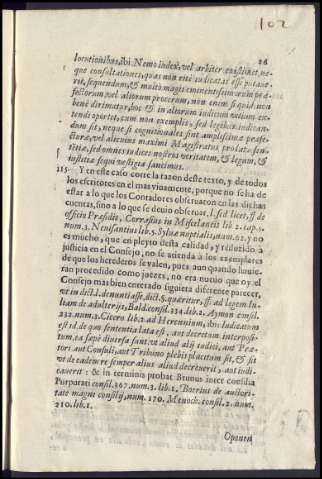 102
26
locutionibus, ibi: Nemo iudex, vel arbiter existimet, ne-
que consultationes, quas non ritè iudicatas esse putaue-
rit, sequendum, & multo magis eminentissimorum præ-
fectorum, vel aliorum procerum, non enim si quid non
benè dirimatur, hoc & in aliorum iudicum vitium ex-
tendi oportet, cum non exemplis, sed legibus iudican-
dum sit, neque si cognitionales sint amplissimæ præfe-
cturæ, vel alicuius maximi Magistratus prolata sen-
tētia, sed omnes iudices nostros veritatem, & legum, &
iustitiæ sequi vestigia sancimus.
215. Y en este caso corre la razon deste texto, y de todos
los escritores en el mas viuamente, porque no se ha de
estar a lo que los Contadores obseruaron en las dichas
cuentas, sino a lo que se deuio obseruar, l. sed licet, ff. de
officio Præsidis, Corrasius in Miscelaneis lib. 2. cap. 5.
num. 3. Neusantius lib. 5. Syluæ nuptialis, num. 62. y no
es mucho, que en pleyto desta calidad, y reduzido à
justicia en el Consejo, no se atienda à los exemplares
de que los herederos se valen, pues aun quando huuie-
ran procedido como juezes, no era nueuo que oy el
Consejo mas bien enterado siguiera diferente parecer,
vt in dict. l. demuntiasse, dict. §. quæritur, ff. ad legem Iu-
liam de adulterijs, Bald. consil. 334. lib. 2. Aymon consil.
232. num. 3. Cicero lib. 2. ad Herennium, ibi: Iudicatum
est id, de quo sententia lata est, aut decretum interposi-
tum, ea sæpe diuersa sunt vt aliud alij iudici, aut Præ-
tori aut Consuli, aut Tribuno plebis placitum sit, & sit
vt de eadem re semper alius aliud decreuerit, aut iudi-
cauerit: & in terminis probat Brunus inter consilia
Purpurati consil. 367. num. 3. lib. 1. Borrius de auctori-
tate magni consilij, num. 170. Menoch. consil. 2. num.
210. lib. 1.
Oponen